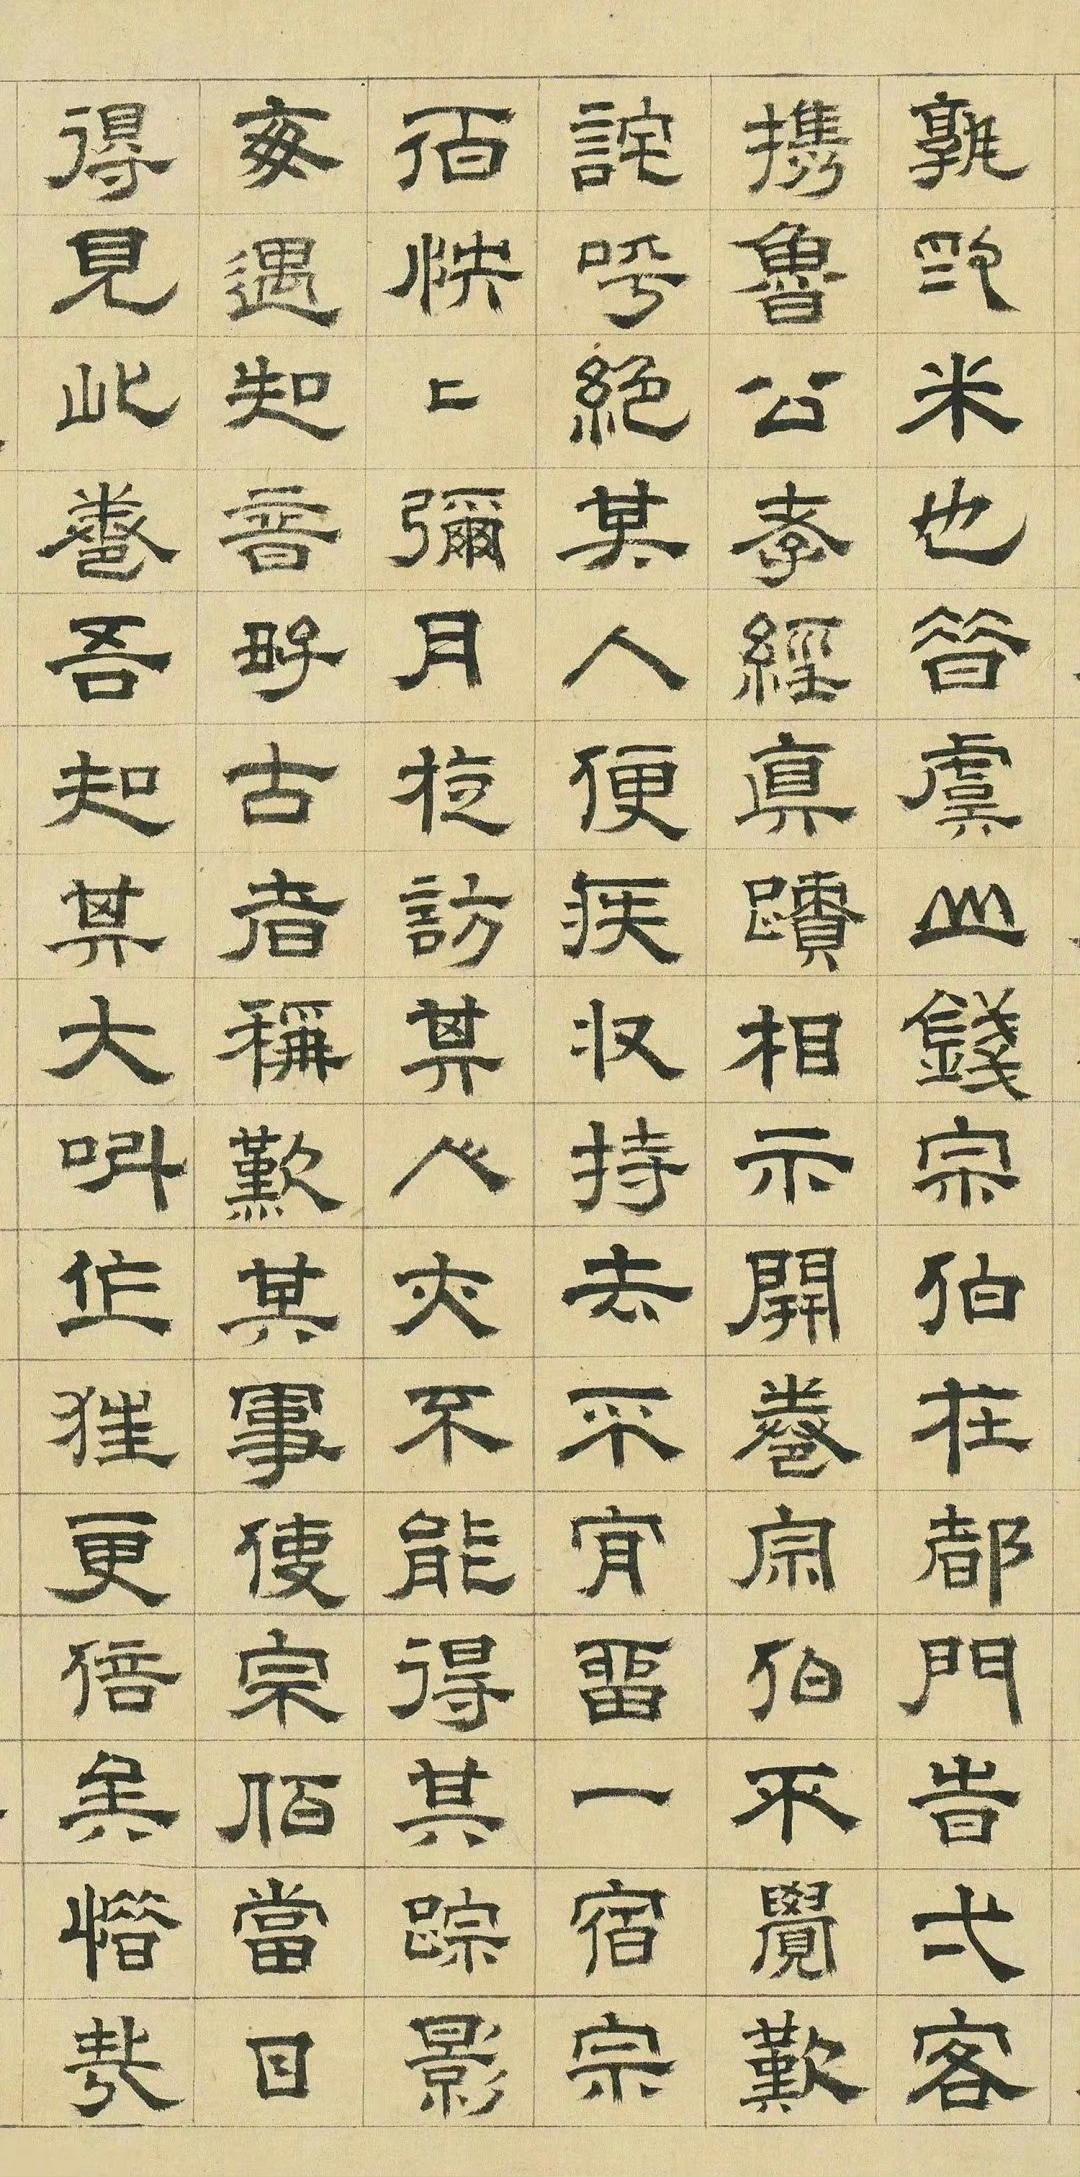 孰米也昔虞山錢宗伯在都門旹弍客
携魯公孝經真蹟相示開卷宗伯不覺歎
詫呼絕其人便疾收持去不肯留一宿宗
佰怏二彌月從訪其人亦不能得其踪影
每遇知音好古者稱歎其事使宗佰當日
得見此卷吾知其大叫作狂更倍矣惜哉